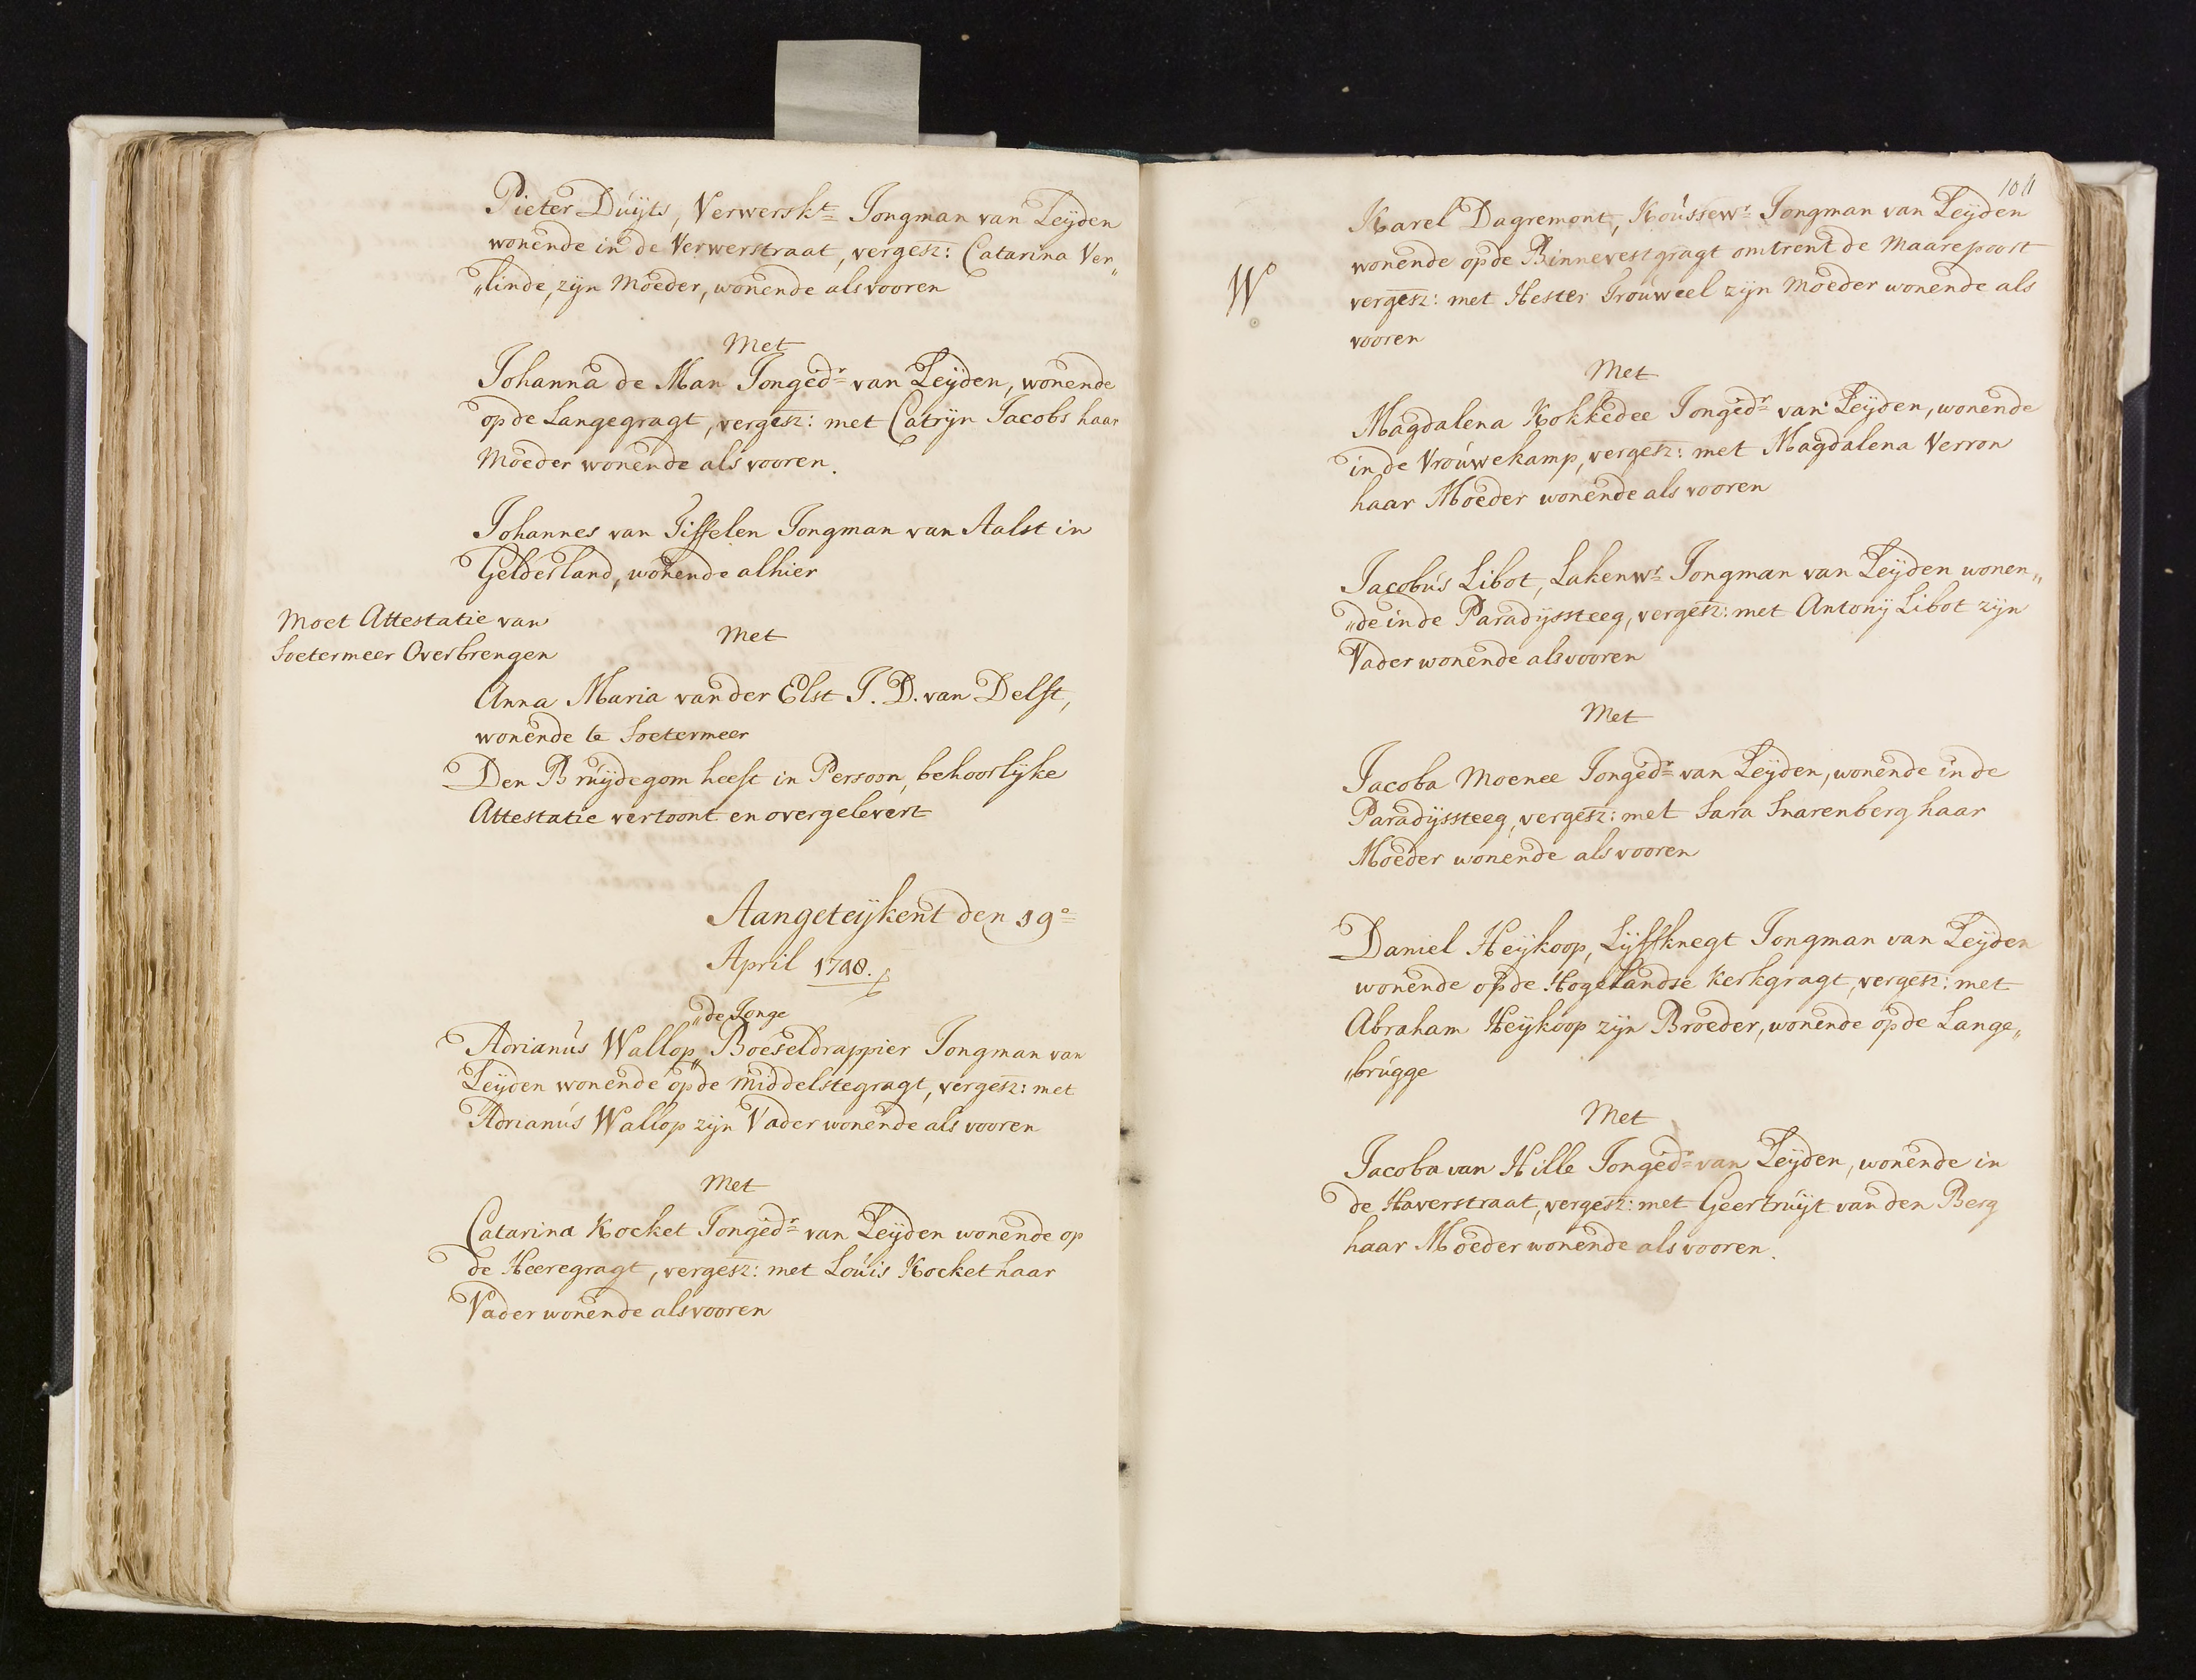 Pieter Duijts, Verwerskt= Jongman van Leijden
wonende in de Verwerstraat, vergesz: Catarina Ver„
„linde, zijn Moeder, wonende als vooren
Met
Johanna de Man Jongedr= van Leijden, wonende
op de Langegragt, vergesz: met Catrijn Jacobs haar
Moeder wonende als vooren.
Johannes van Tiffelen Jongman van Aalst in
Gelderland, wonende alhier
Moet Attestatie van
Soetermeer Overbrengen
Met
Anna Maria van der Elst J. D. van Delft,
wonende te Soetermeer
Den Bruijdegom heeft in Persoon, behoorlijke
Attestatie vertoont en overgelevert
Aangeteijkent den 19e=
April 1748.
„de Jonge
Adrianus Wallop„ Boeseldrappier Jongman van
Leijden wonende op de Middelstegragt, vergesz: met
Adrianus Wallop zijn Vader wonende als vooren
Met
Catarina Kocket Jongedr= van Leijden wonende op
de Heeregragt, vergesz: met Louis Kocket haar
Vader wonende als vooren
104
Karel Dagremont, Koussewr= Jongman van Leijden
wonende op de Binnevestgragt omtrent de Maarepoort
W
vergesz: met Hester Trouweel zijn Moeder wonende als
vooren
Met
Magdalena Kokkedee Jongedr= van Leijden, wonende
in de Vrouwekamp, vergesz: met Magdalena Verron
haar Moeder wonende als vooren
Jacobus Libot, Lakenwr= Jongman van Leijden wonen„
„de in de Paradijssteeg, vergesz: met Antonij Libot zijn
Vader wonende als vooren
Met
Jacoba Moenee Jongedr= van Leijden, wonende in de
Paradijssteeg, vergesz: met Sara Snarenberg haar
Moeder wonende als vooren
Daniel Heijkoop, Lijffknegt Jongman van Leijden
wonende op de Hogelandse Kerkgragt, vergesz: met
Abraham Heijkoop zijn Broeder, wonende op de Lange„
„brugge
Met
Jacoba van Hille Jongedr= van Leijden, wonende in
de Haverstraat, vergesz: met Geertruijt van den Berg
haar Moeder wonende als vooren.